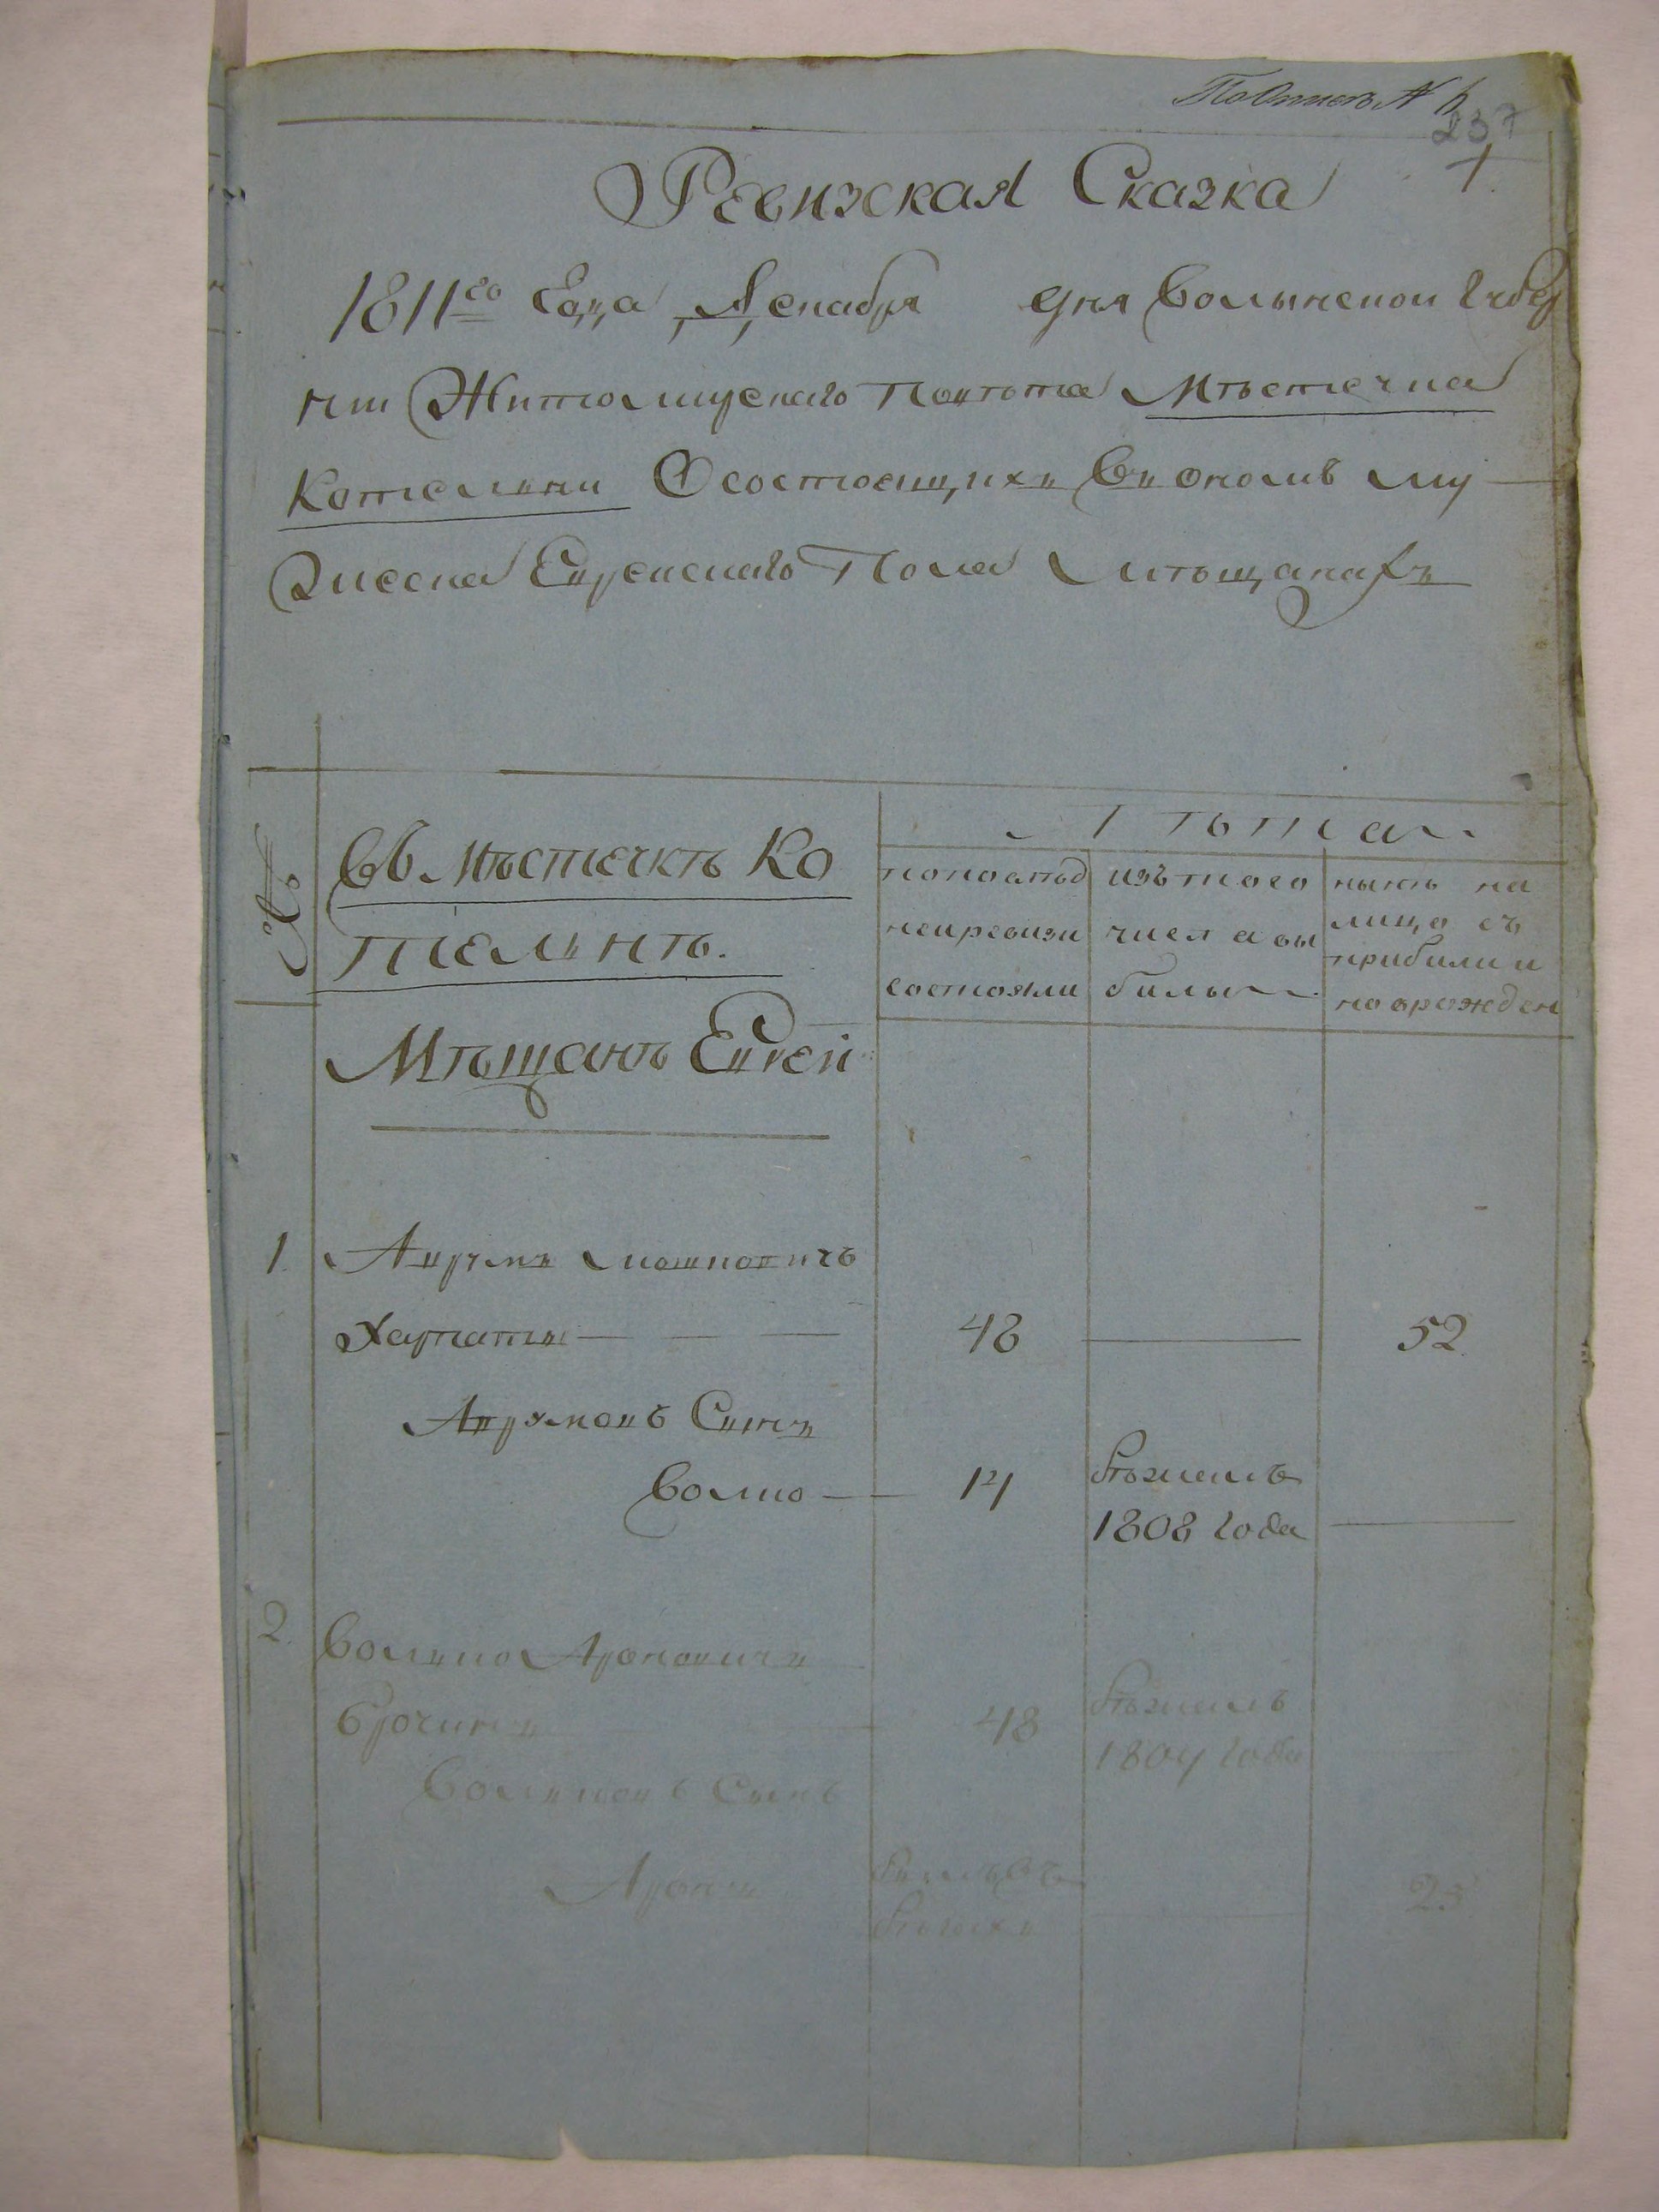 По Описи №
237
1
Ревизская Сказка
1811го Года Декабря дня Волынской Губер
нии Житомирскаго Повѣта Мѣстечка
Котельни О состоящихъ въ ономъ му
жеска Еврейскаго Пола мѣщанахъ
№
Въ Мѣстечкѣ Ко
тельнѣ.
Мѣщанъ Еврей
Лѣта
по послѣд
ней ревизи
состояли
изъ того
числа вы
были
нынѣ на
лицо съ
прибыли и
новорожден
1 Аврумъ Мошковичъ
48 52
Аврумовъ Сынъ
Волко 14
Бѣжалъ
1808 года
2 Волько Ароновичъ
48
Бѣжалъ
1804 года
Вольковъ Сынъ
Аронъ
Бѣгахъ
25